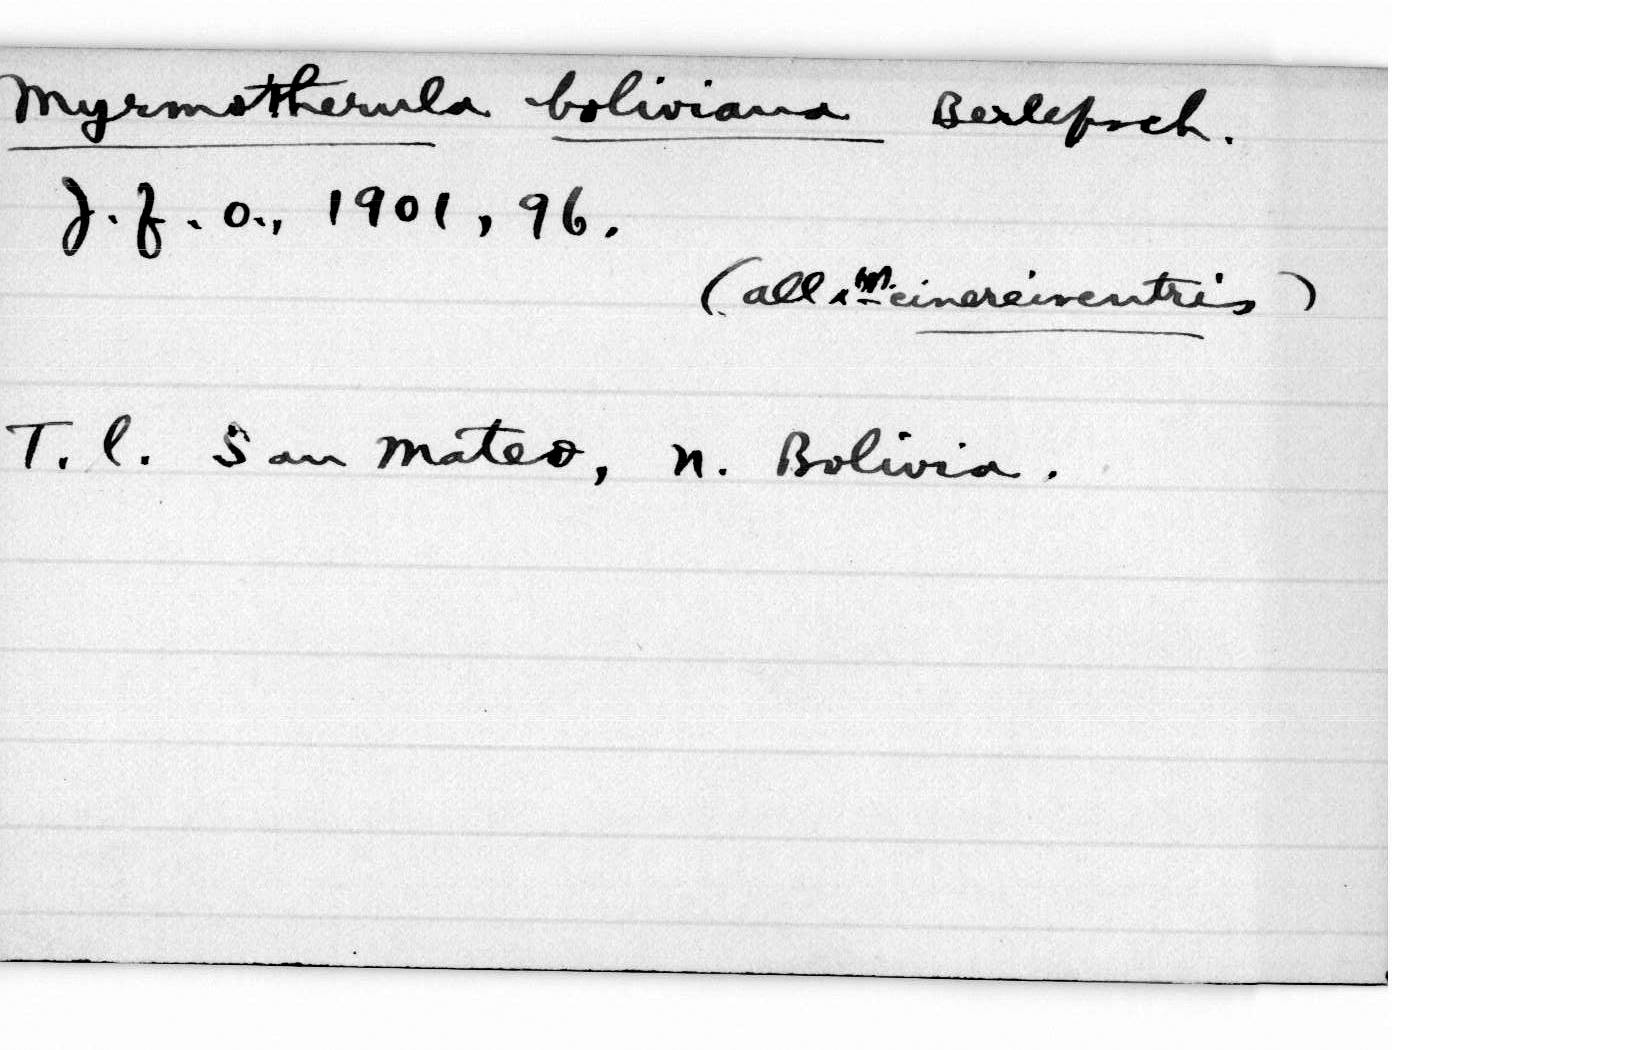 Myrmotherula boliviana Berlepsch.
J. f. O., 1901, 96.
(all. M. cinereiventris)
T. l. San Mateo, n. Bolivia.